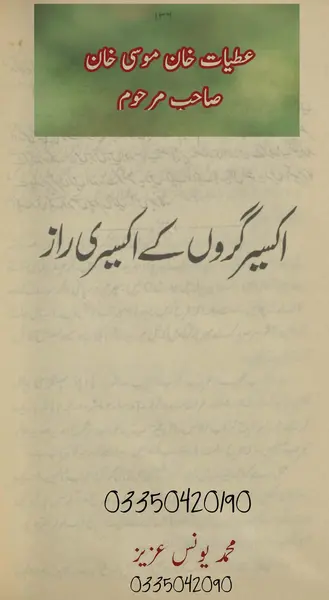 ۱۳۶
عطیات خان موسی خان
صاحب مرحوم
اکسیر گروں کے اکسیری راز
03350420190
محمد یونس عزیز
0335042090